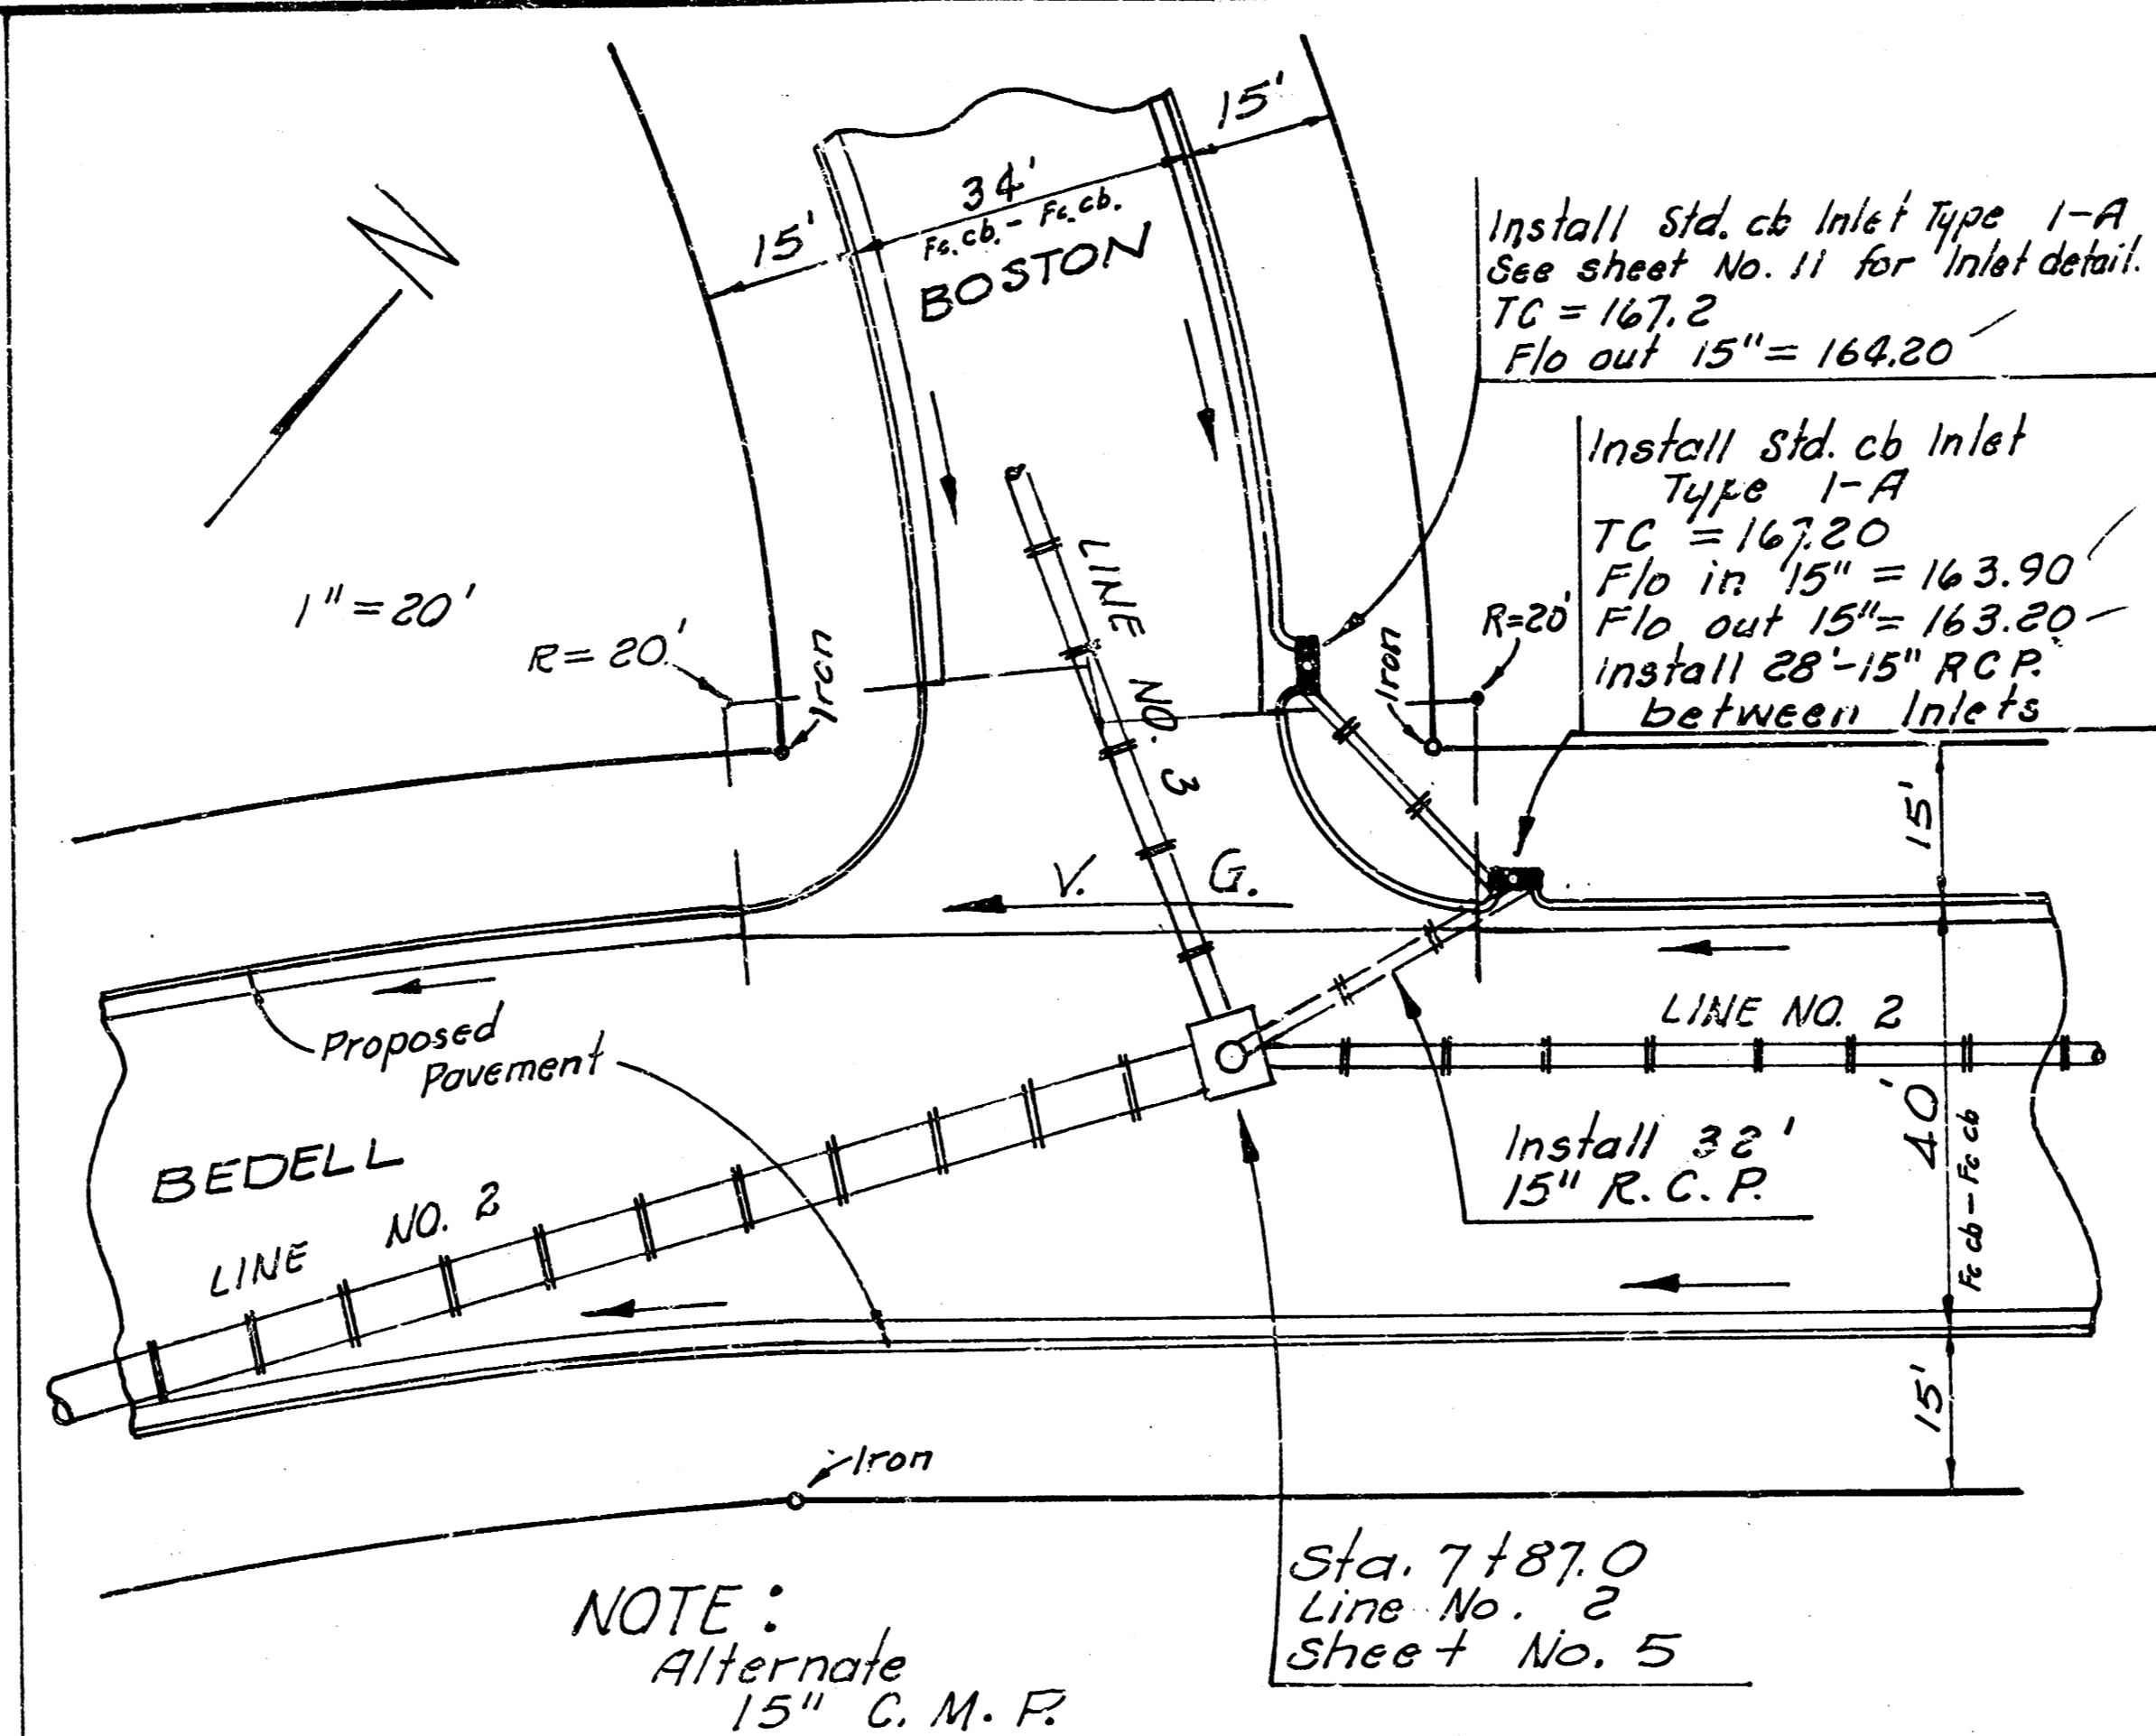 15'
34'
Fc. cb. - Fc. cb.
15'
BOSTON
N
1" = 20'
R = 20'
Iron
LINE NO. 3
Install Std. cb Inlet Type 1-A
See sheet No. 11 for Inlet detail.
TC = 167.2
Flo out 15" = 164.20
Install Std. cb Inlet
Type 1-A
TC = 167.20
Flo in 15" = 163.90
Flo out 15" = 163.20
Install 28'-15" R C P.
between Inlets
R=20'
Iron
15'
V. G.
LINE NO. 2
Proposed
Pavement
BEDELL
LINE NO. 2
Install 32'
15" R. C. P.
40'
Fc cb - Fc cb
15'
Iron
Sta. 7+87.0
Line No. 2
Sheet No. 5
NOTE :
Alternate
15" C. M. P.